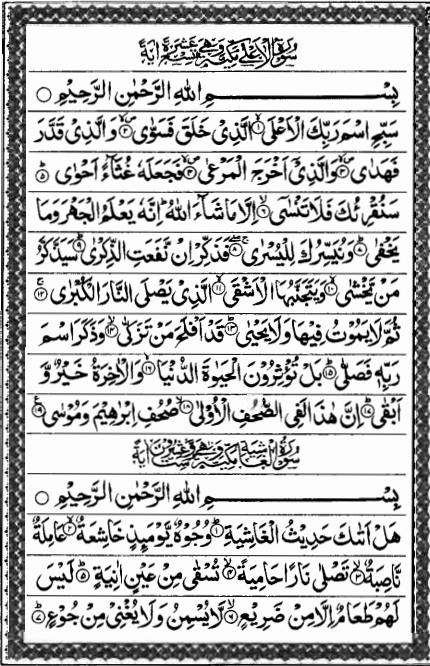 سُوْرَةُ الْاَعْلٰى مَكِّيَّةٌ وَّهِيَ تِسْعَ عَشَرَةَ اٰيَةً
بِسْمِ اللهِ الرَّحْمٰنِ الرَّحِيْمِ ○
سَبِّحِ اسْمَ رَبِّكَ الْاَعْلَى ۙ﴿۱﴾ الَّذِيْ خَلَقَ فَسَوّٰى ۙ﴿۲﴾ وَالَّذِيْ قَدَّرَ
فَهَدٰى ۙ﴿۳﴾ وَالَّذِيْۤ اَخْرَجَ الْمَرْعٰى ۙ﴿۴﴾ فَجَعَلَهٗ غُثَآءً اَحْوٰى ؕ﴿۵﴾
سَنُقْرِئُكَ فَلَا تَنْسٰۤى ۙ﴿۶﴾ اِلَّا مَا شَآءَ اللهُ ؕ اِنَّهٗ يَعْلَمُ الْجَهْرَ وَمَا
يَخْفٰى ؕ﴿۷﴾ وَنُيَسِّرُكَ لِلْيُسْرٰى ۚۖ﴿۸﴾ فَذَكِّرْ اِنْ نَّفَعَتِ الذِّكْرٰى ؕ﴿۹﴾ سَيَذَّكَّرُ
مَنْ يَّخْشٰى ۙ﴿۱۰﴾ وَيَتَجَنَّبُهَا الْاَشْقَى ۙ﴿۱۱﴾ الَّذِيْ يَصْلَى النَّارَ الْكُبْرٰى ۚ﴿۱۲﴾
ثُمَّ لَا يَمُوْتُ فِيْهَا وَلَا يَحْيٰى ؕ﴿۱۳﴾ قَدْ اَفْلَحَ مَنْ تَزَكّٰى ۙ﴿۱۴﴾ وَذَكَرَ اسْمَ
رَبِّهٖ فَصَلّٰى ؕ﴿۱۵﴾ بَلْ تُؤْثِرُوْنَ الْحَيٰوةَ الدُّنْيَا ۖ﴿۱۶﴾ وَالْاٰخِرَةُ خَيْرٌ وَّ
اَبْقٰى ؕ﴿۱۷﴾ اِنَّ هٰذَا لَفِي الصُّحُفِ الْاُوْلٰى ۙ﴿۱۸﴾ صُحُفِ اِبْرٰهِيْمَ وَمُوْسٰى ﴿۱۹﴾
سُوْرَةُ الْغَاشِيَةِ مَكِّيَّةٌ وَّهِيَ سِتٌّ وَّعِشْرُوْنَ اٰيَةً
بِسْمِ اللهِ الرَّحْمٰنِ الرَّحِيْمِ ○
هَلْ اَتٰىكَ حَدِيْثُ الْغَاشِيَةِ ؕ﴿۱﴾ وُجُوْهٌ يَّوْمَئِذٍ خَاشِعَةٌ ۙ﴿۲﴾ عَامِلَةٌ
نَّاصِبَةٌ ۙ﴿۳﴾ تَصْلٰى نَارًا حَامِيَةً ۙ﴿۴﴾ تُسْقٰى مِنْ عَيْنٍ اٰنِيَةٍ ؕ﴿۵﴾ لَيْسَ
لَهُمْ طَعَامٌ اِلَّا مِنْ ضَرِيْعٍ ۙ﴿۶﴾ لَّا يُسْمِنُ وَلَا يُغْنِيْ مِنْ جُوْعٍ ؕ﴿۷﴾